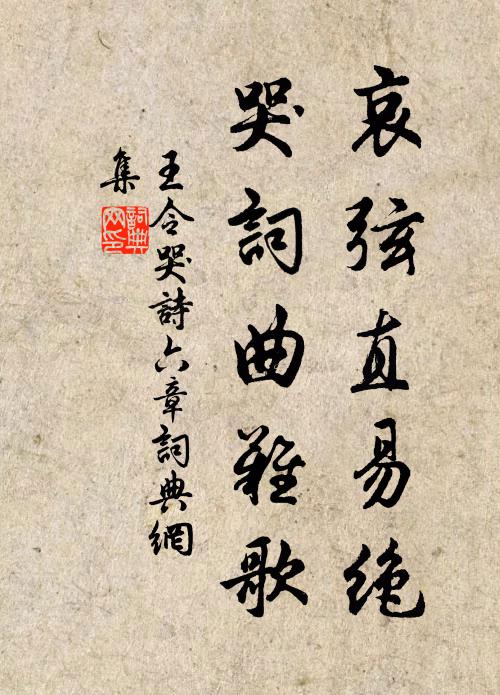 哀弦直易絶
哭詞曲難歌
王令哭詩六章詞典網
集
詞典
网印